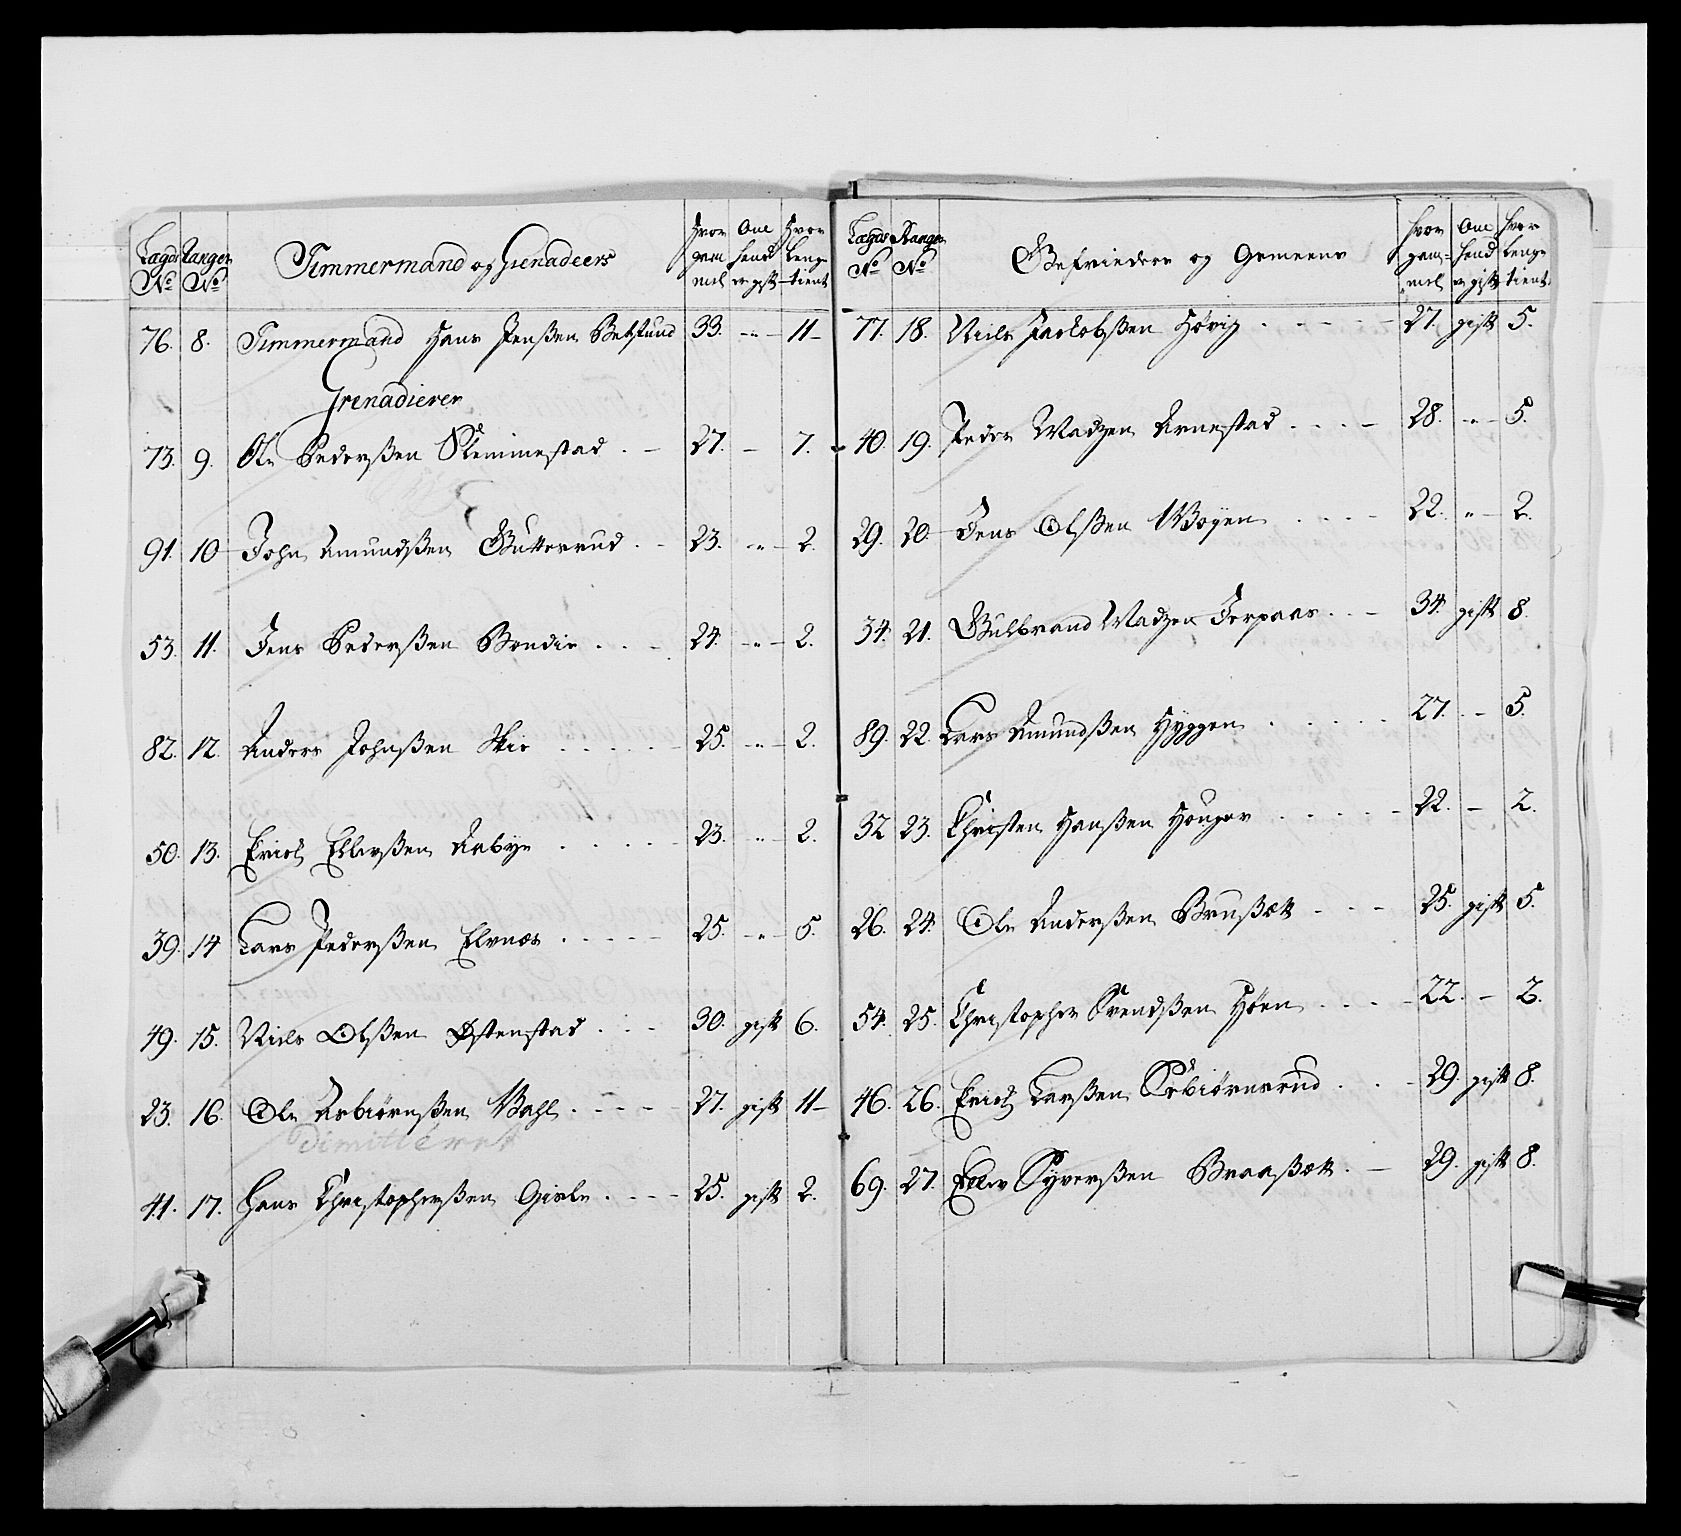 Lægds No Rangen No Timmermand og Grenadeers Hvor gam̄el Om hand er gift Hvor Lenge tient
76. 8. Timmermand Hans Jenßen Betstund 33. -"- 11-
Grenadierer
73. 9. Ole Pederßen Slemmestad . - 27. - 7.
91. 10 John Amundßen Gutterrud . - 23. -"- 2.
53. 11. Jens Pederßen Bondie . . . 24. -"- 2.
82. 12. Anders Johnßen Skie . . . . . 25. -"- 2.
50. 13. Erich Ellerßen Aabye . . . . . 23. -"- 2.
39. 14 Lars Pederßen Elvnæs . . . . . 25. -"- 5.
49. 15. Niels Olßen Østenstad . . . 30. gift 6.
23. 16. Ole Asbiørnßen Wahl . . . . 27. gift 11-
Dimitteret
41. 17. Hans Christopherßen Gisle . . . . 25. gift 2.
Lægds No Rangen No Befriedere og Gemeene Hvor gam-mel Om hand er gift Hvor Lenge tient.
77. 18. Niels Jackobßen Høvig . . . . . 27. gift 5.
40. 19. Peder Madzen Arnestad . . . . 28. -"- 5.
29. 20. Jens Olßen Wøyen . . . . 22. " - 2.
34. 21. Gulbrand Madzen Terpaas . . - 34. gift 8.
89. 22. Lars Amundßen Hyggen . . . . . 27. - 5.
32 23. Christen Hanßen Houger . . . . . 22. - 2.
26. 24. Ole Anderßen Brußæt . . . 25. gift 5.
54. 25. Christopher Svendßen Høen . . . . 22. - 2.
46. 26. Erich Larßen Torbiørnsrud . . . 29. gift 8.
69. 27. Eller Syverßen Braaßæt . - 29. gift 8.